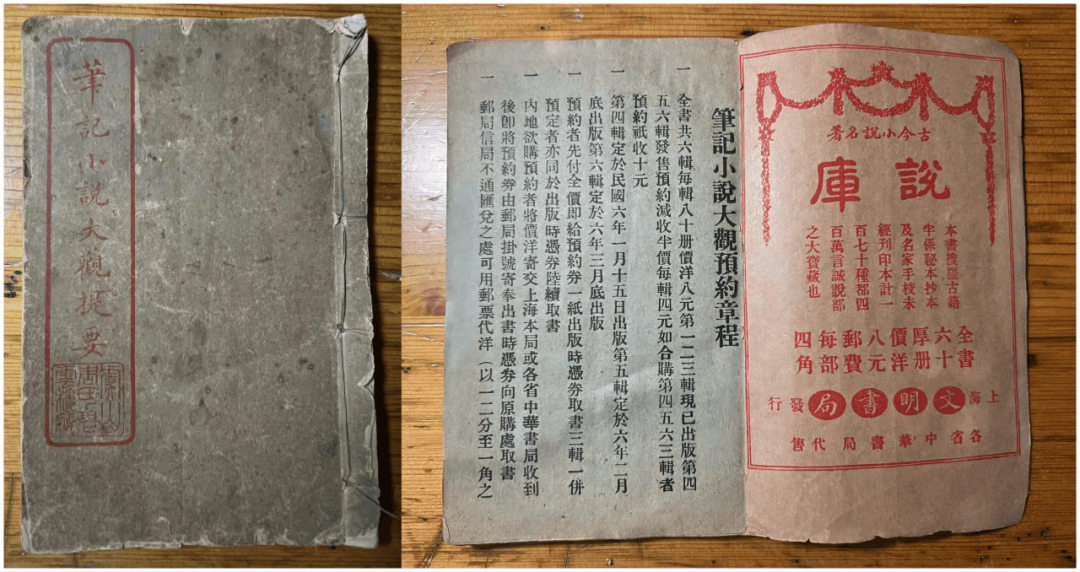 筆記小說大觀提要
筆記小說大觀預約章程
一 全書共六輯每輯八十册價洋八元第一二三輯現已出版第四
五六輯發售預約減收半價每輯四元如合購第四五六三輯者
預約祇收十元
一 第四輯定於民國六年一月十五日出版第五輯定於六年二月
底出版第六輯定於六年三月底出版
一 預約者先付全價即給預約券一紙出版時憑券取書三輯一併
預定者亦同於出版時憑券陸續取書
一 內地欲購預約者將價洋寄交上海本局或各省中華書局收到
後即將預約券由郵局掛號寄奉出書時憑券向原購處取書
一 郵局信局不通匯兌之處可用郵票代洋（以一二分至一角之
古今小說名著
說庫
本書搜羅古籍
半係秘本抄本
及名家手校未
經刊印本計一
百七十種都四
百萬言誠說部
之大寶藏也
全書
六十
厚册
價洋
八元
郵費
每部
四角
上海文明書局發行
各省中華書局代售